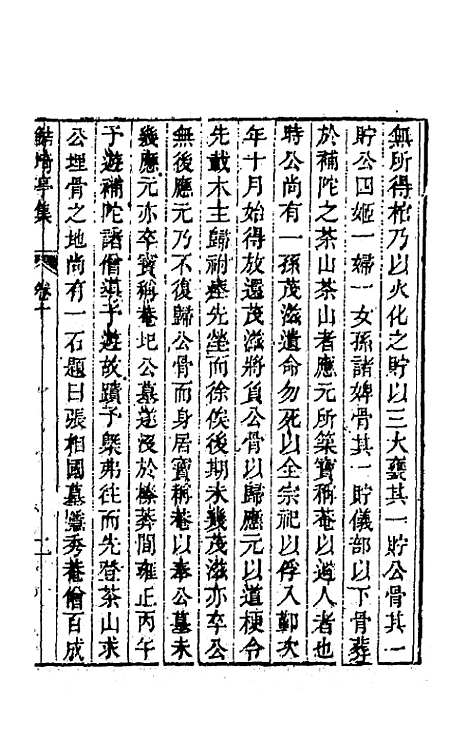 無所得棺乃以火化之貯以三大甕其一貯公骨其一
貯公四姬一婦一女孫諸婢骨其一貯儀部以下骨葬
於補陀之茶山茶山者應元所築寶稱菴以道人者也
時公尚有一孫茂滋遺命勿死以全宗祀以俘入鄞次
年十月始得放還茂滋將負公骨以歸應元以道梗令
先載木主歸祔瘞先塋而徐俟後期未幾茂滋亦卒公
無後應元乃不復歸公骨而身居寶稱菴以奉公墓未
幾應元亦卒寶稱菴圯公墓遂沒於榛莽間雍正丙午
予遊補陀諸僧導予遊故蹟予槩弗往而先登茶山求
公埋骨之地尚有一石題曰張相國墓蘆秀菴僧百成
鮚埼亭集 卷十